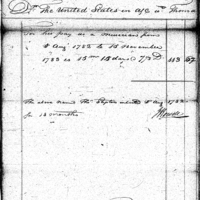 Dr The United States in a/c w Thomas
For his pay as a musician from
8 Augt 1782 to 15 November
1783 is 15 ms 15 days @ 7⅓ D 113
The above named Thos enlisted 8 Augt 1782
for 18 months